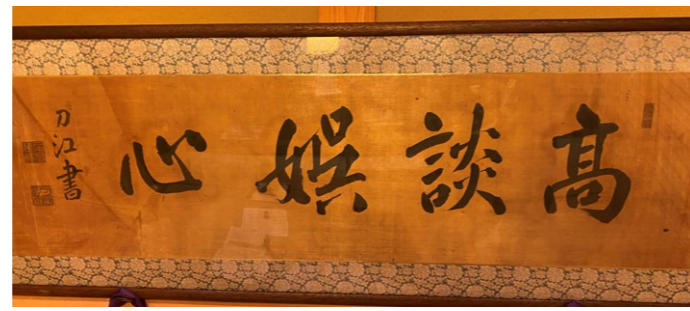 髙談娯心
刀江書